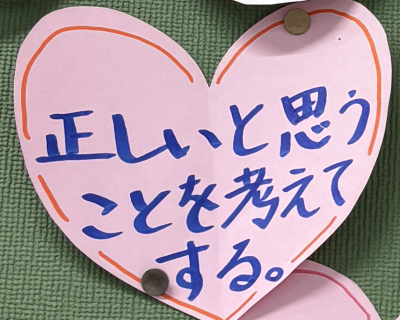 正しいと思う
ことを考えて
する。